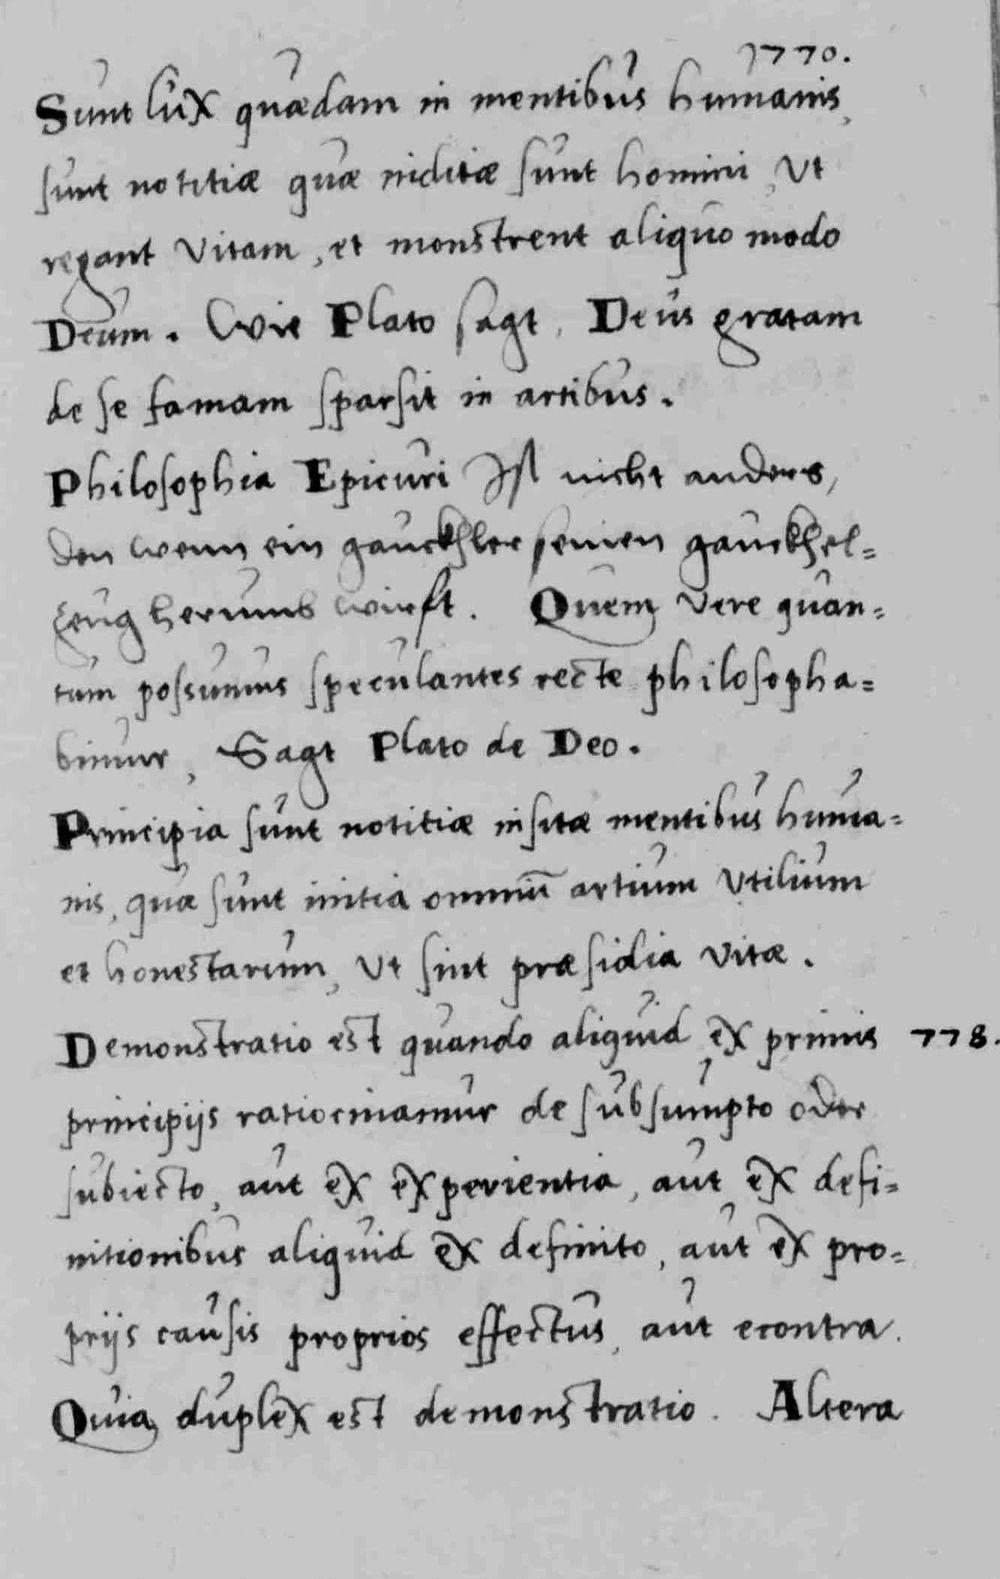 1770.
Sunt lux quædam in mentibus humanis,
sunt notitiæ quæ inditæ sunt homini, Ut
regant vitam, et monstrent aliquo modo
Deum. Wie Plato sagt, Deus gratam
de se famam sparsit in artibus.
Philosophia Epicuri Ist nicht anders,
den wenn ein gauckhler seinen gauckhel=
zeug herumb wirft. Quem vere quan=
tum possumus speculantes recte philosopha=
bimur, Sagt Plato de Deo.
Principia sunt notitiæ insitæ mentibus huma=
nis, quæ sunt initia omniū artium Utilium
et honestarum, Ut sint præsidia vitæ.
Demonstratio est quando aliquid ex primis 778.
principijs ratiocinamur de subsumpto oder
subiecto, aut ex experientia, aut ex defi=
nitionibus aliquid ex definito, aut ex pro=
prijs causis proprios effectus, aut econtra.
Quia duplex est demonstratio. Altera